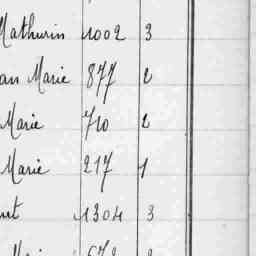 Mathurin 1002 3
an Marie 877 2
Marie 710 2
Marie 217 1
1304 3